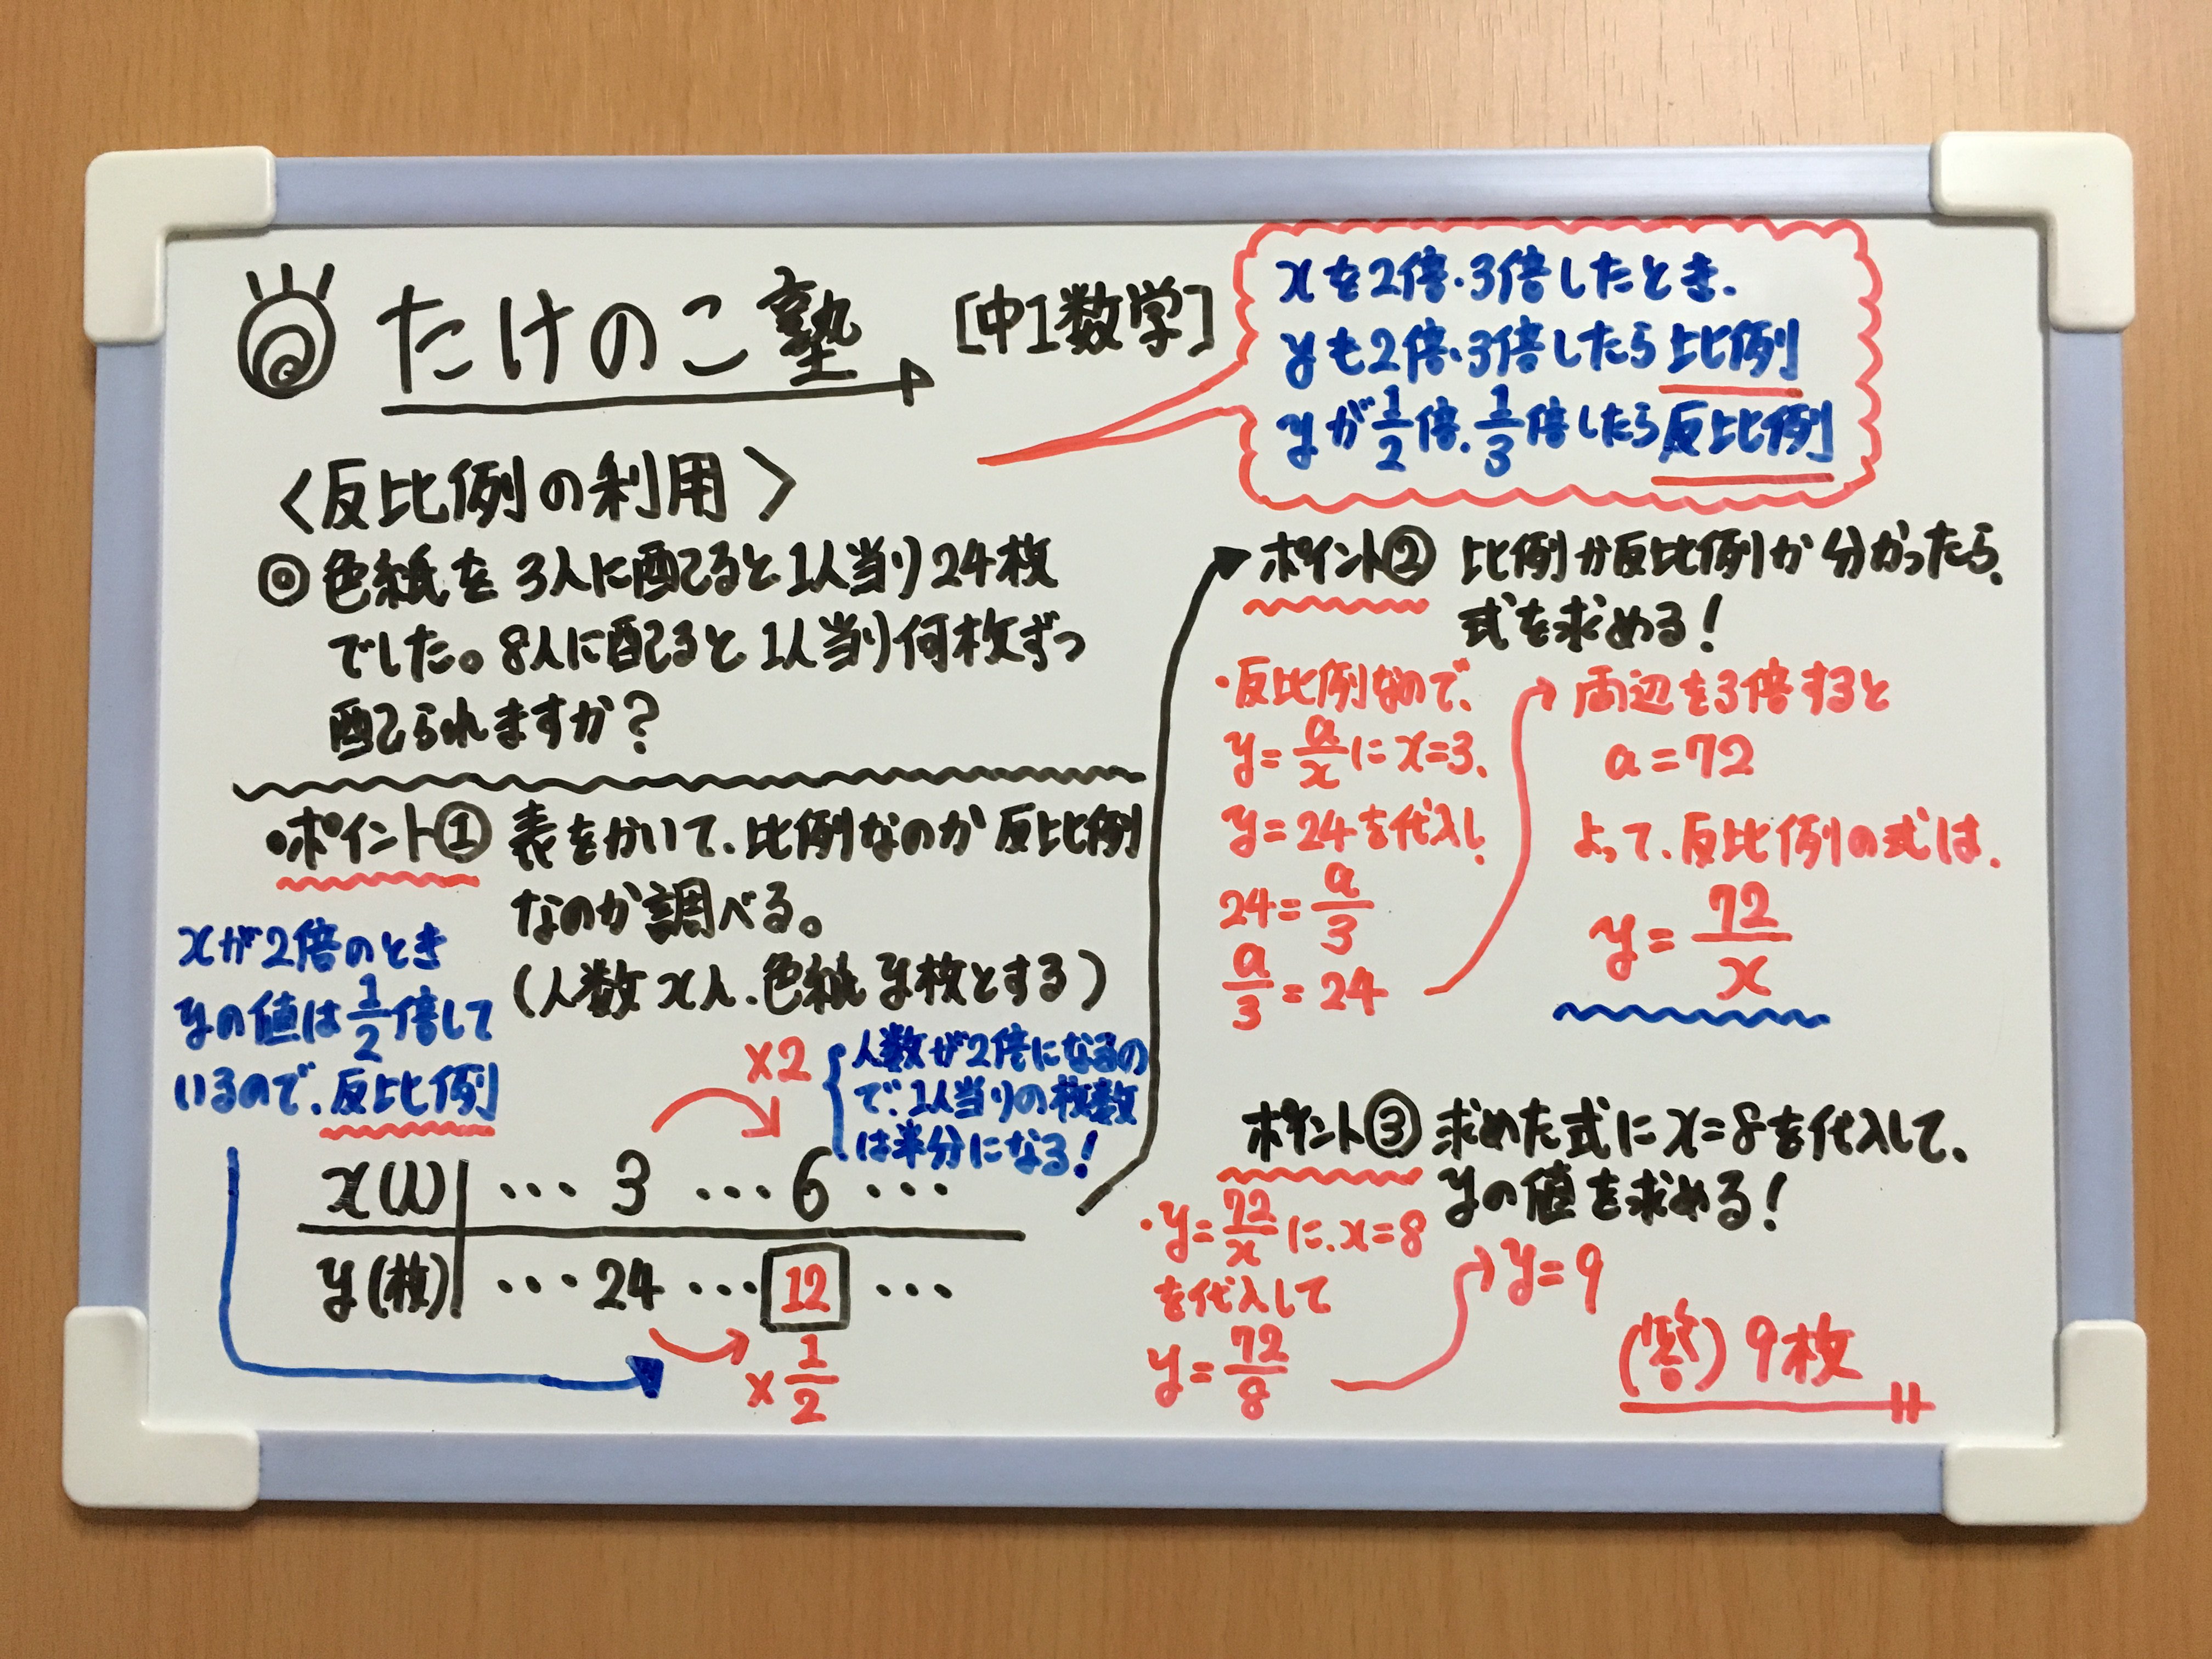 たけのこ塾 [中1数学]
xを2倍・3倍したとき、
yも2倍・3倍したら比例
yが1/2倍、1/3倍したら反比例
〈反比例の利用〉
◎色紙を3人に配ると1人当り24枚
でした。8人に配ると1人当り何枚ずつ
配られますか？
・ポイント① 表をかいて、比例なのか反比例
なのか調べる。
(人数x人、色紙y枚とする)
xが2倍のとき
yの値は1/2倍して
いるので、反比例
×2
人数が2倍になるの
で、1人当りの枚数
は半分になる！
x(人) … 3 … 6 …
y(枚) … 24 … 12 …
×1/2
ポイント② 比例か反比例か分かったら、
式を求める！
・反比例なので、
y=a/xにx=3、
y=24を代入し、
24=a/3
a/3=24
両辺を3倍すると
a=72
よって、反比例の式は、
y=72/x
ポイント③ 求めた式にx=8を代入して、
yの値を求める！
・y=72/xに、x=8
を代入して
y=72/8
y=9
(答) 9枚